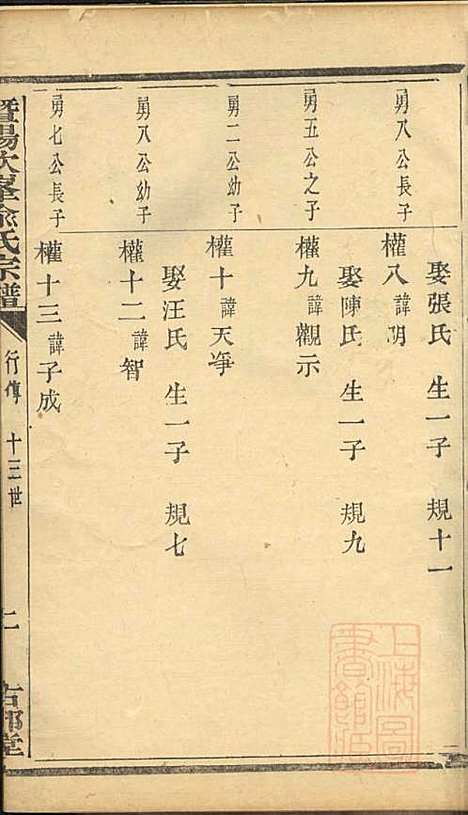 娶張氏 生一子 規十一
勇八公長子
權八 諱明
娶陳氏 生一子 規九
勇五公之子
權九 諱觀示
勇二公幼子
權十 諱天爭
娶汪氏 生一子 規七
勇八公幼子
權十二 諱智
勇七公長子
權十三 諱子成
暨陽次峯俞氏宗譜
行傳 十三世
二
上海圖書館藏